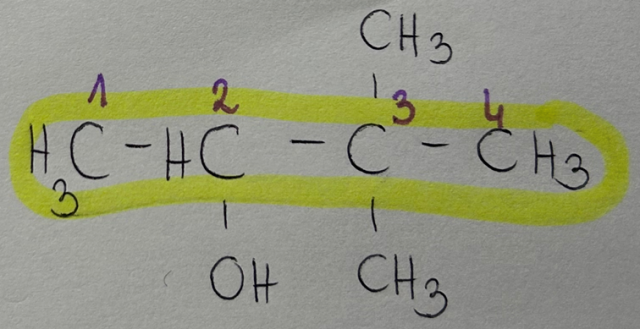 CH3
1 2 3 4
H3C-HC-C-CH3
OH CH3